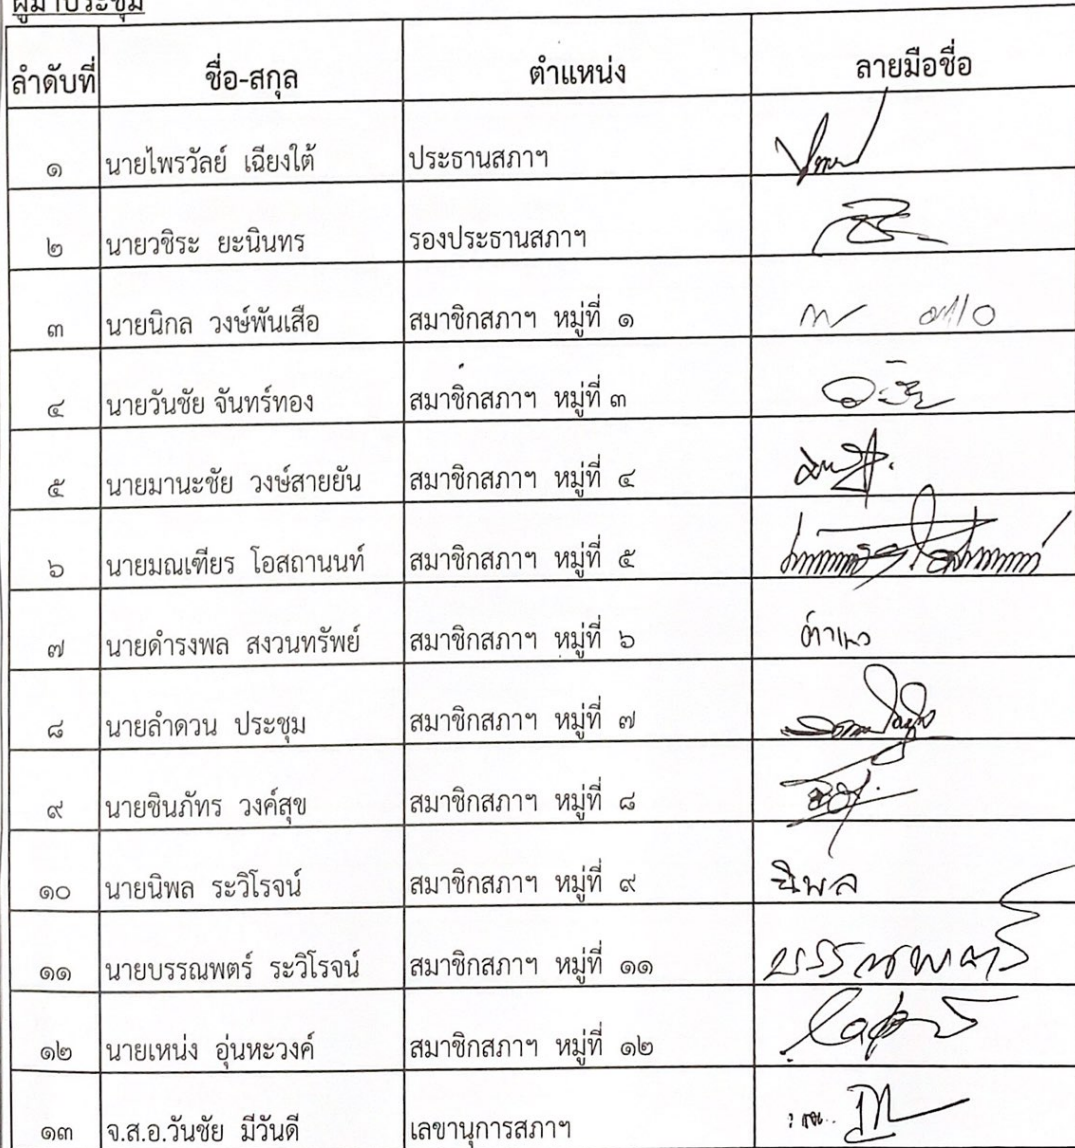 ผู้มาประชุม
ลำดับที่ ชื่อ-สกุล ตำแหน่ง ลายมือชื่อ
๑ นายไพรวัลย์ เฉียงใต้ ประธานสภาฯ
๒ นายวชิระ ยะนินทร รองประธานสภาฯ
๓ นายนิกล วงษ์พันเสือ สมาชิกสภาฯ หมู่ที่ ๑
๔ นายวันชัย จันทร์ทอง สมาชิกสภาฯ หมู่ที่ ๓
๕ นายมานะชัย วงษ์สายยัน สมาชิกสภาฯ หมู่ที่ ๔
๖ นายมณเฑียร โอสถานนท์ สมาชิกสภาฯ หมู่ที่ ๕
๗ นายดำรงพล สงวนทรัพย์ สมาชิกสภาฯ หมู่ที่ ๖
๘ นายลำดวน ประชุม สมาชิกสภาฯ หมู่ที่ ๗
๙ นายชินภัทร วงค์สุข สมาชิกสภาฯ หมู่ที่ ๘
๑๐ นายนิพล ระวิโรจน์ สมาชิกสภาฯ หมู่ที่ ๙ นิพล
๑๑ นายบรรณพตร์ ระวิโรจน์ สมาชิกสภาฯ หมู่ที่ ๑๑ บรรณพตร์
๑๒ นายเหน่ง อุ่นหะวงค์ สมาชิกสภาฯ หมู่ที่ ๑๒
๑๓ จ.ส.อ.วันชัย มีวันดี เลขานุการสภาฯ